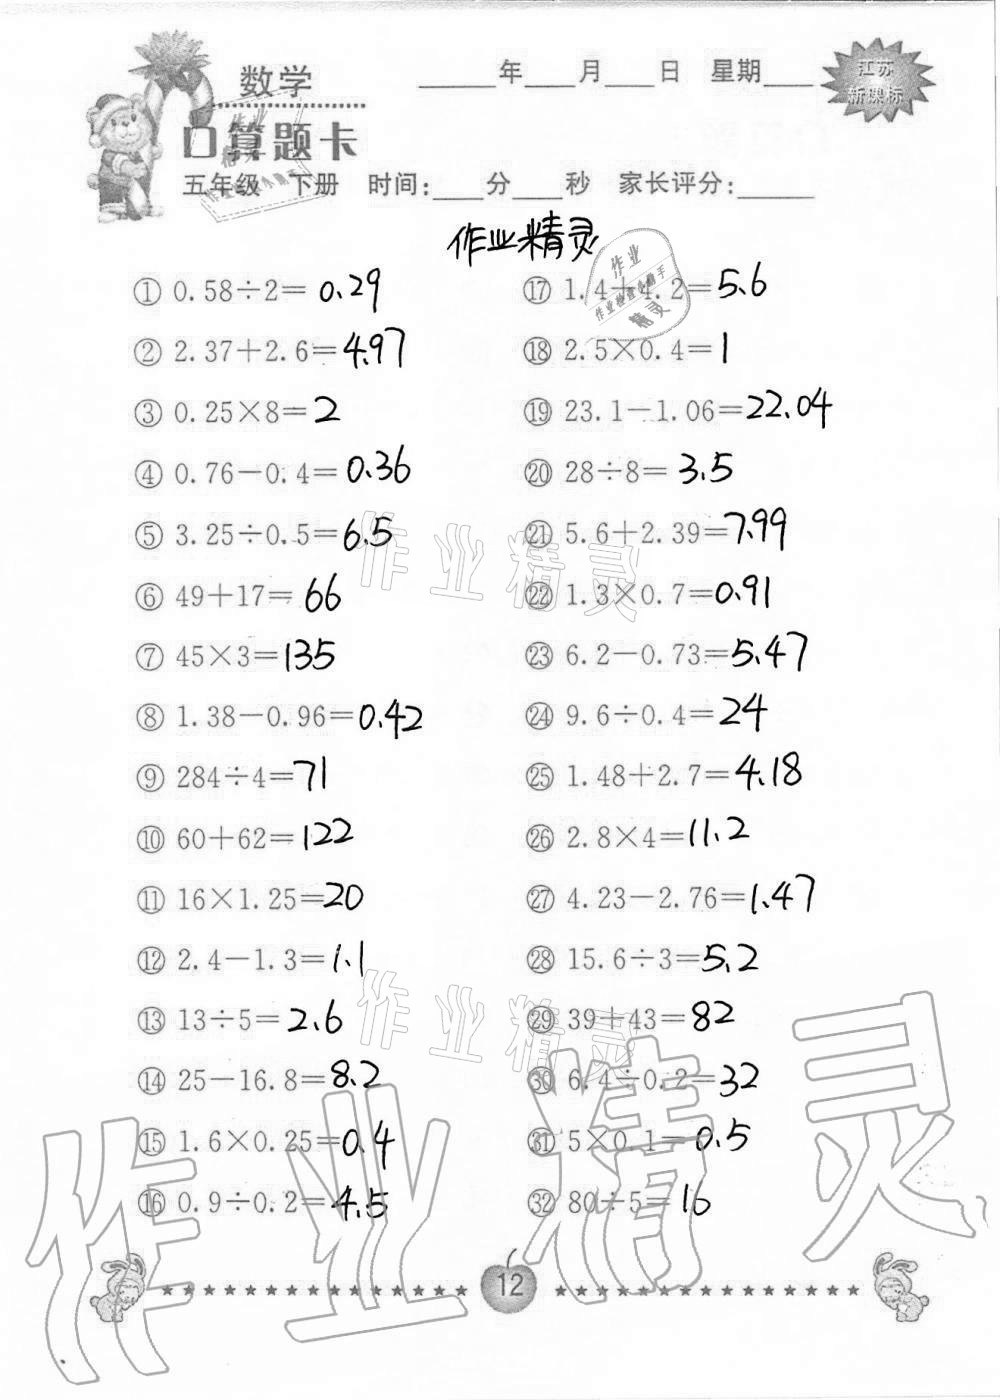 数学
____年____月____日 星期____
江苏
新课标
口算题卡
五年级 下册 时间:____分____秒 家长评分:____
作业精灵
① 0.58÷2=0.29
② 2.37+2.6=4.97
③ 0.25×8=2
④ 0.76-0.4=0.36
⑤ 3.25÷0.5=6.5
⑥ 49+17=66
⑦ 45×3=135
⑧ 1.38-0.96=0.42
⑨ 284÷4=71
⑩ 60+62=122
⑪ 16×1.25=20
⑫ 2.4-1.3=1.1
⑬ 13÷5=2.6
⑭ 25-16.8=8.2
⑮ 1.6×0.25=0.4
⑯ 0.9÷0.2=4.5
⑰ 1.4+4.2=5.6
⑱ 2.5×0.4=1
⑲ 23.1-1.06=22.04
⑳ 28÷8=3.5
㉑ 5.6+2.39=7.99
㉒ 1.3×0.7=0.91
㉓ 6.2-0.73=5.47
㉔ 9.6÷0.4=24
㉕ 1.48+2.7=4.18
㉖ 2.8×4=11.2
㉗ 4.23-2.76=1.47
㉘ 15.6÷3=5.2
㉙ 39+43=82
㉚ 6.4÷0.2=32
㉛ 5×0.1=0.5
㉜ 80÷5=16
作业精灵
作业精灵
作业精灵
12